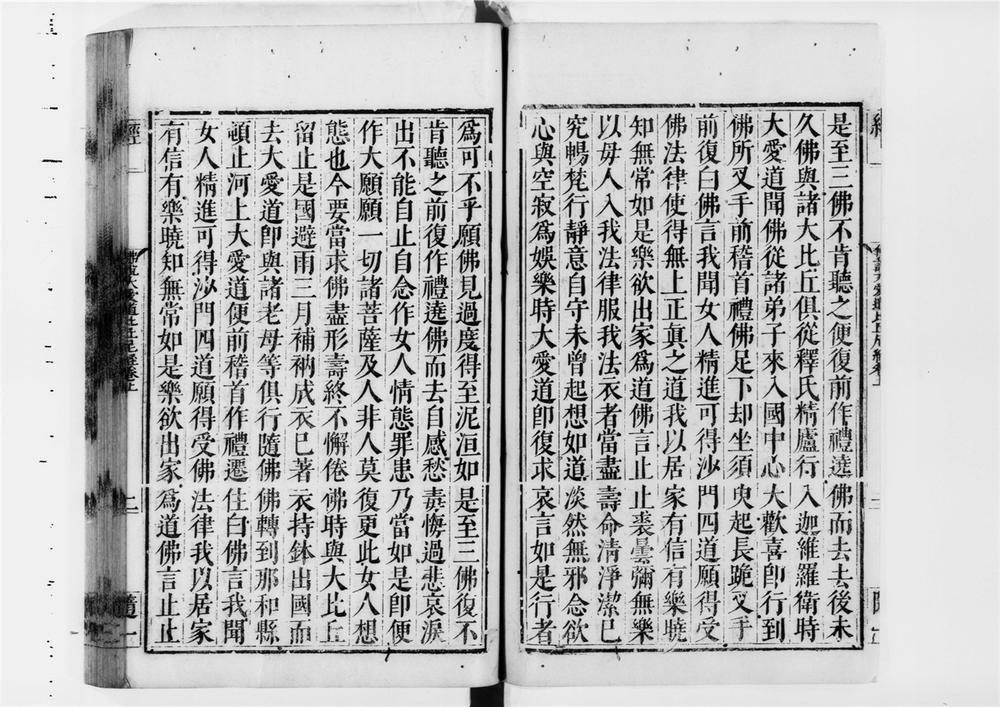 是至三佛不肯聽之便復前作禮遶佛而去去後未
久佛與諸大比丘俱從釋氏精廬行入迦維羅衛時
大愛道聞佛從諸弟子來入國中心大歡喜即行到
佛所叉手前稽首禮佛足下却坐須臾起長跪叉手
前復白佛言我聞女人精進可得沙門四道願得受
佛法律使得無上正真之道我以居家有信有樂曉
知無常如是樂欲出家爲道佛言止止裘曇彌無樂
以母人入我法律服我法衣者當盡壽命清淨潔已
究暢梵行靜意自守未曾起想如道淡然無邪念欲
心與空寂爲娛樂時大愛道即復求哀言如是行者
爲可不乎願佛見過度得至泥洹如是至三佛復不
肯聽之前復作禮遶佛而去自感愁毒悔過悲哀淚
出不能自止自念作女人情態罪患乃當如是即便
作大願願一切諸菩薩及人非人莫復更此女人想
態也今要當求佛盡形壽終不懈倦佛時與大比丘
留止是國避雨三月補衲成衣已著衣持鉢出國而
去大愛道即與諸老母等俱行隨佛佛轉到那和縣
頓止河上大愛道便前稽首作禮遷住白佛言我聞
女人精進可得沙門四道願得受佛法律我以居家
有信有樂曉知無常如是樂欲出家爲道佛言止止
經 佛說大愛道比丘尼經卷上 二 隨一